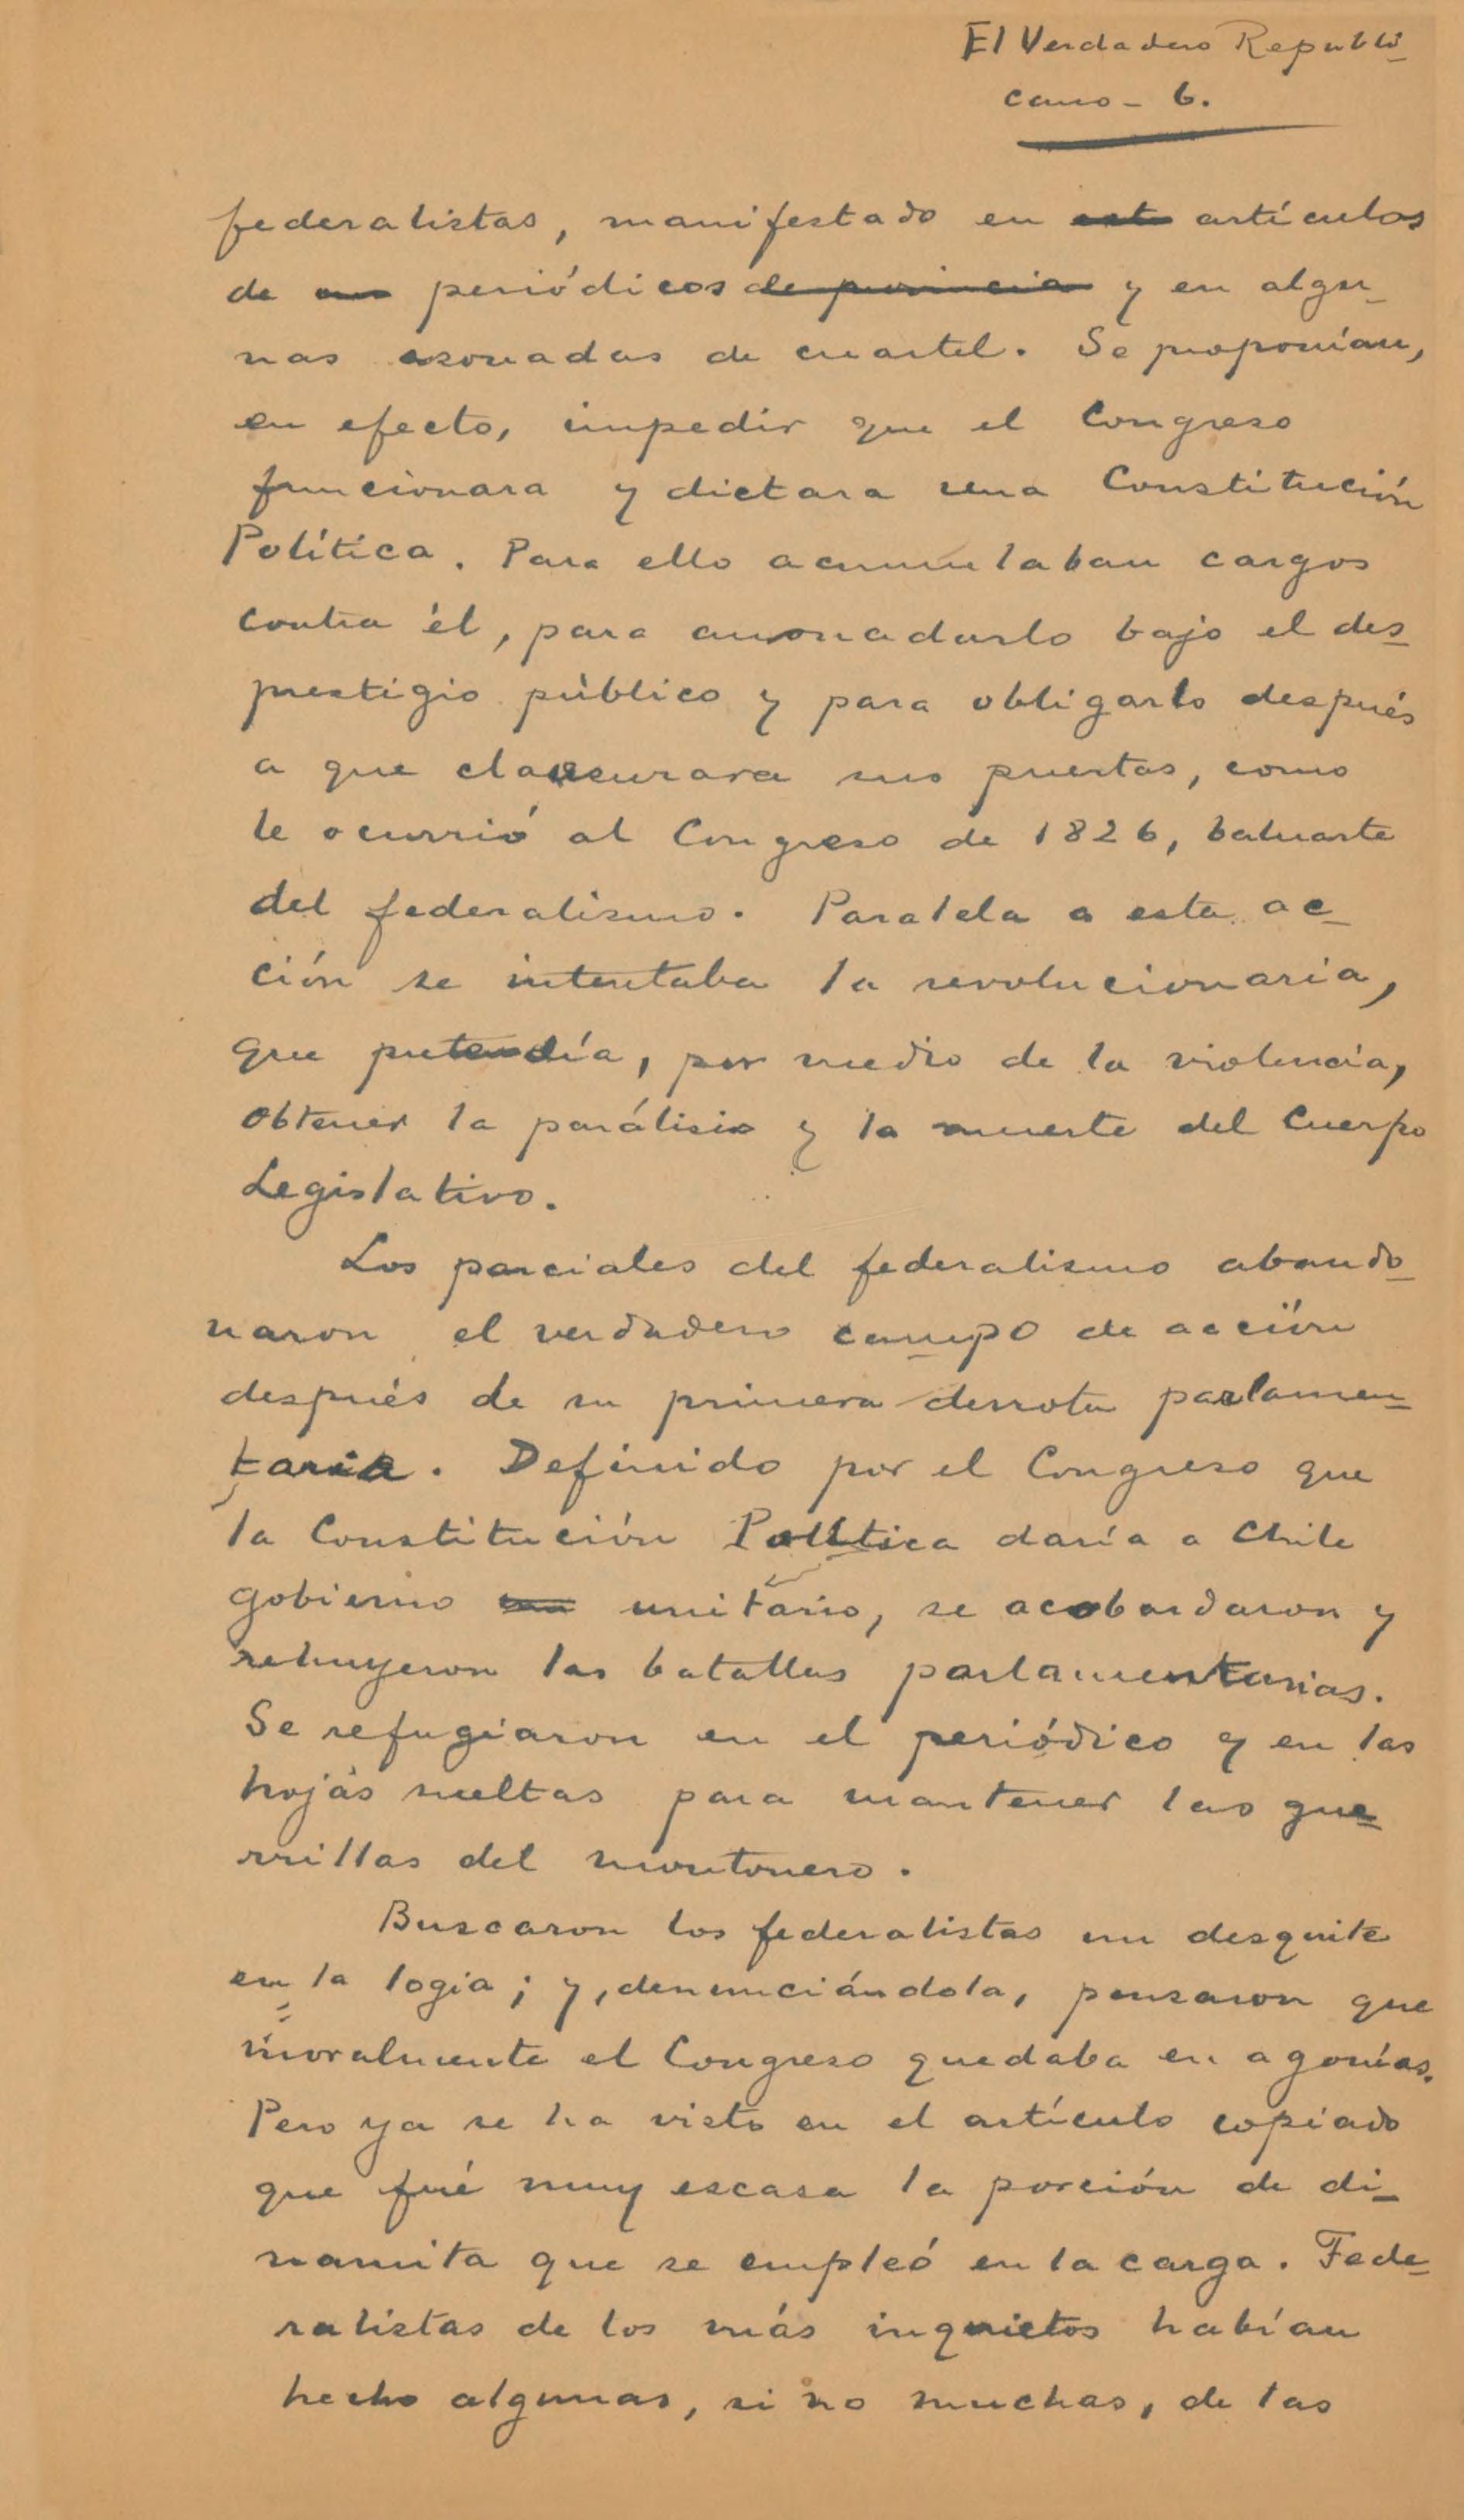 El Verdadero Republi-
cano - 6.
federalistas, manifestado en est artículos
de un periódicos de provincia y en algu-
nas asonadas de cuartel. Se proponían,
en efecto, impedir que el Congreso
funcionara y dictara una Constitución
Política. Para ello acumulaban cargos
contra él, para anonadarlo bajo el des-
prestigio público y para obligarlo después
a que clausurara sus puertas, como
le ocurrió al Congreso de 1826, baluarte
del federalismo. Paralela a esta ac-
ción se intentaba la revolucionaria,
que pretendía, por medio de la violencia,
obtener la parálisis y la muerte del Cuerpo
Legislativo.
Los parciales del federalismo abando-
naron el verdadero campo de acción
después de su primera derrota parlamen-
taria. Definido por el Congreso que
la Constitución Política daría a Chile
gobierno unitario, se acobardaron y
rehuyeron las batallas parlamentarias.
Se refugiaron en el periódico y en las
hojas sueltas para mantener las gue-
rrillas del montonero.
Buscaron los federalistas un desquite
en la logia; y, denunciándola, pensaron que
moralmente el Congreso quedaba en agonías.
Pero ya se ha visto en el artículo copiado
que fué muy escasa la porción de di-
namita que se empleó en la carga. Fede-
ralistas de los más inquietos habían
hecho algunas, si no muchas, de las